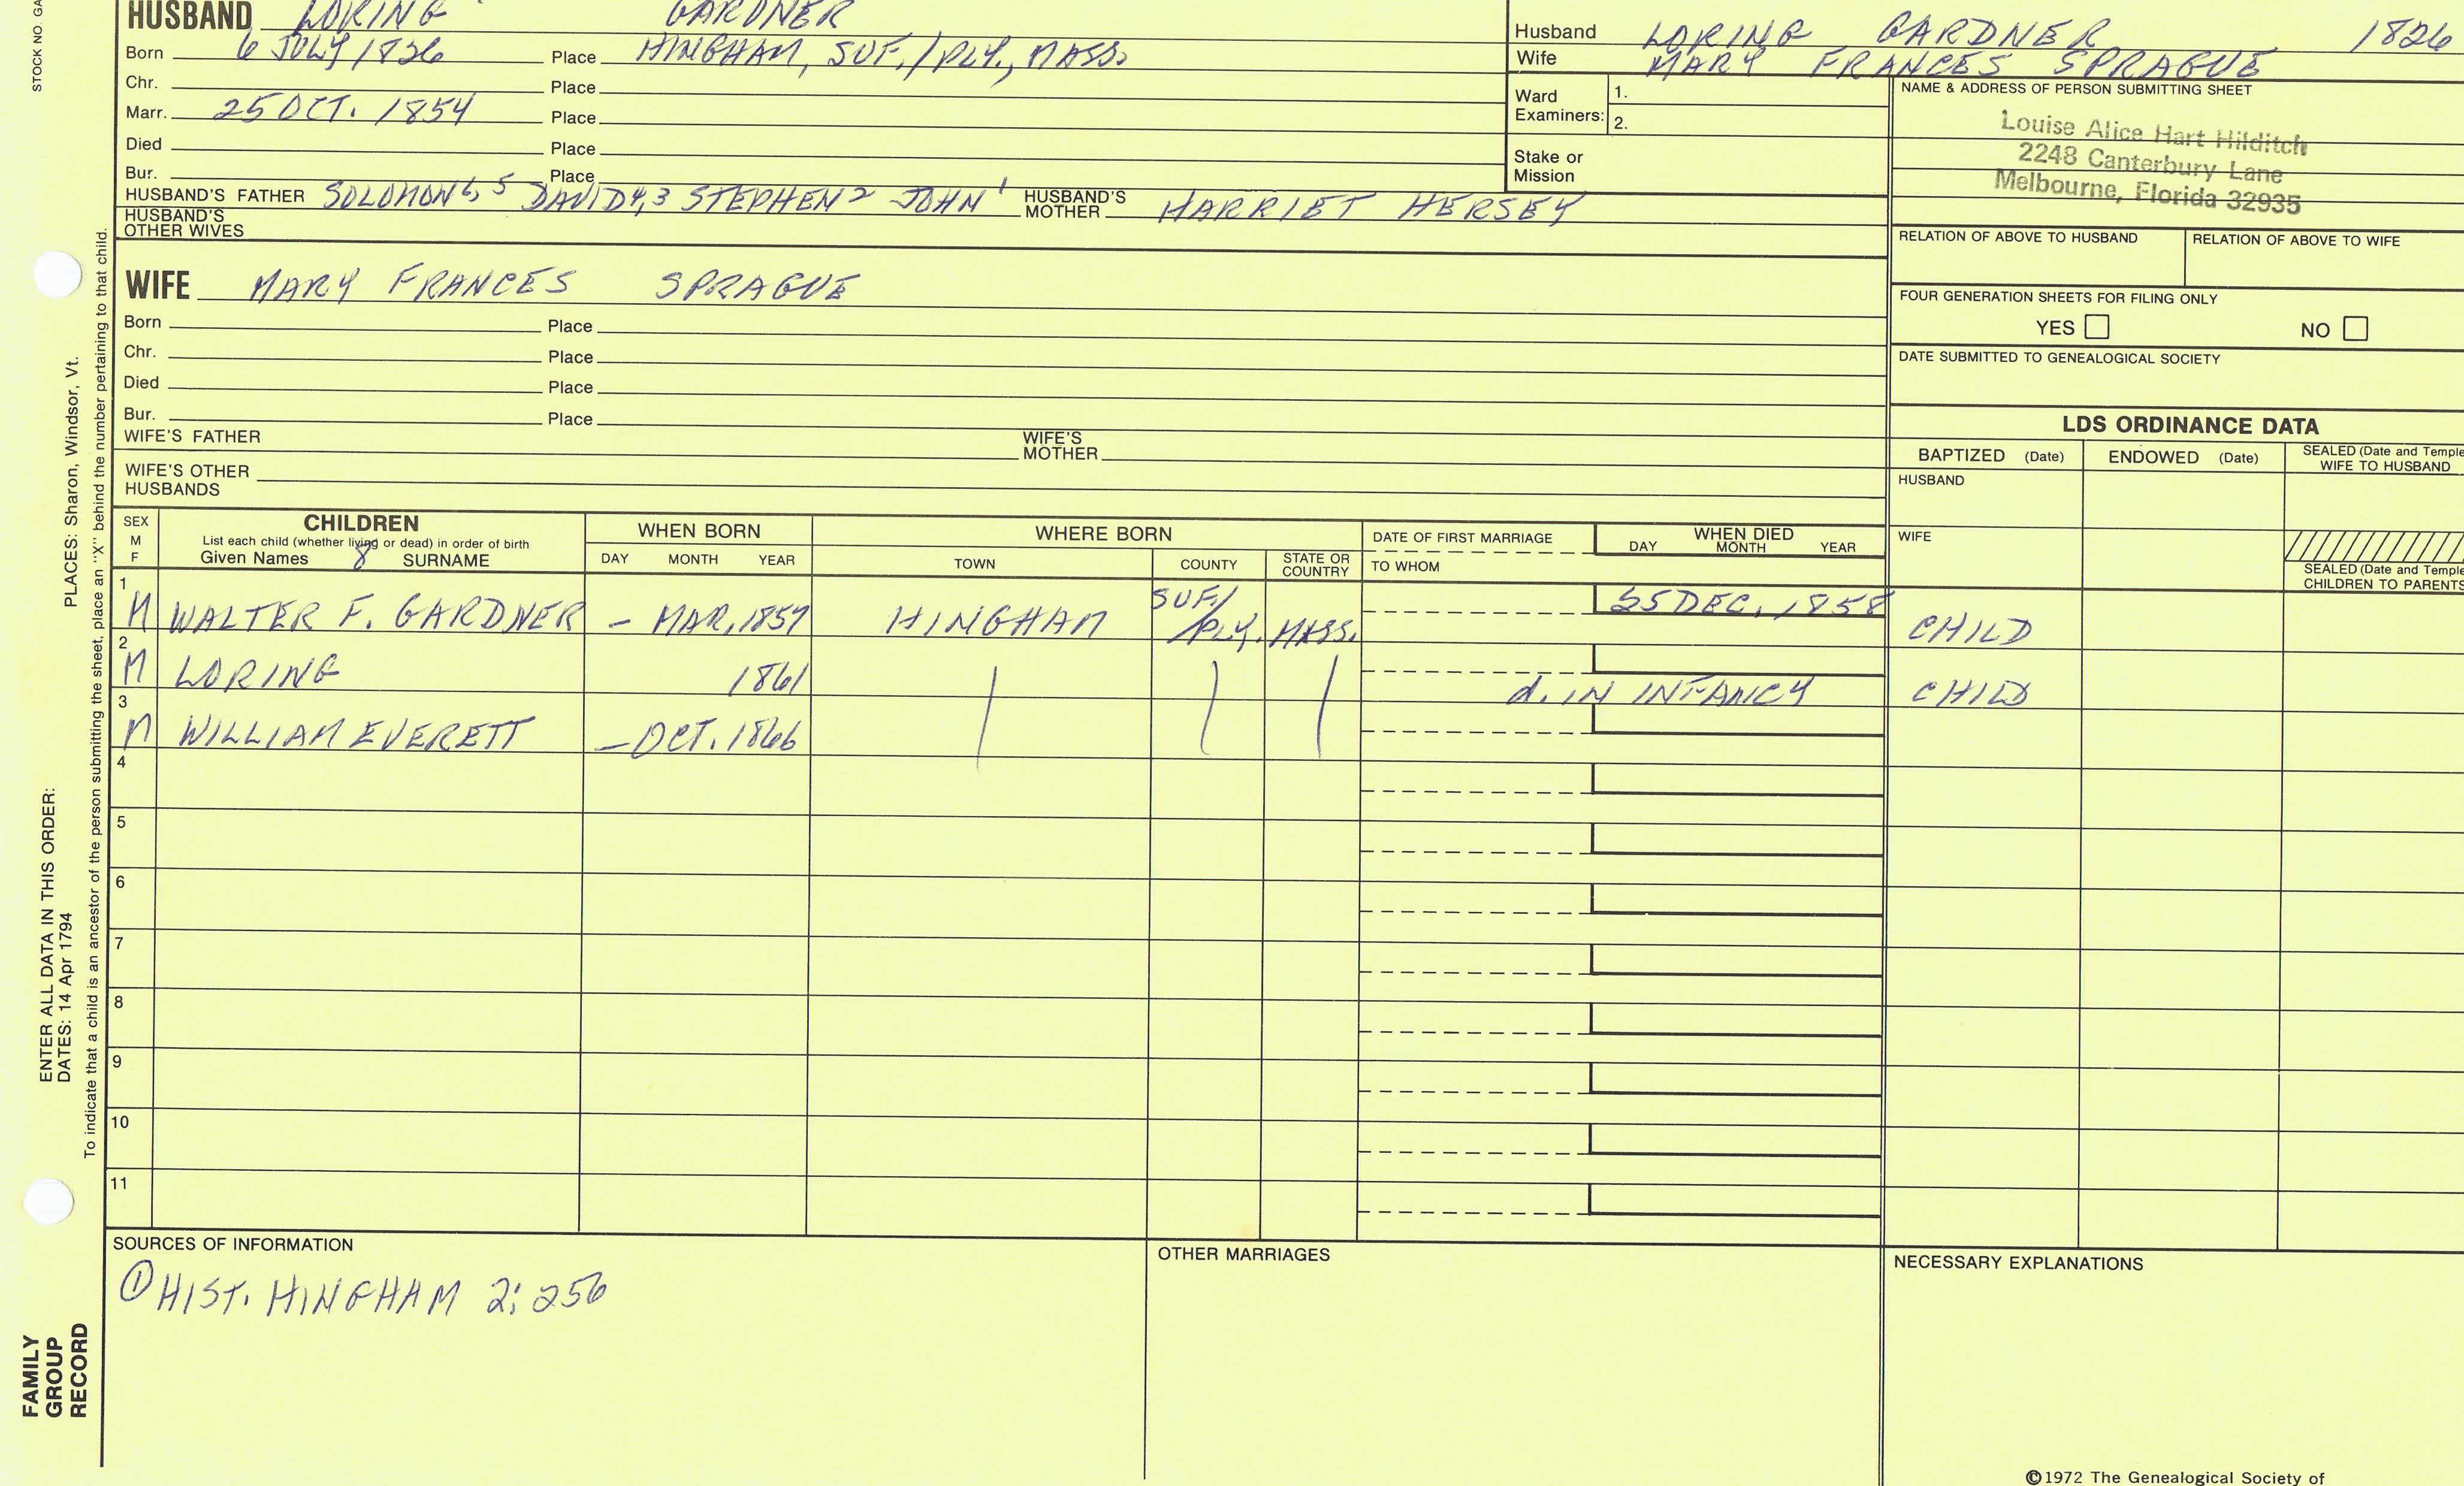 STOCK NO. GA
HUSBAND LORING GARDNER
Born 6 JULY 1826 Place HINGHAM, SUF./PLY., MASS.
Chr. Place
Marr. 25 OCT. 1854 Place
Died Place
Bur. Place
HUSBAND'S FATHER SOLOMON6,5 DAVID4,3 STEPHEN2 JOHN1 HUSBAND'S MOTHER HARRIET HERSEY
HUSBAND'S OTHER WIVES
Husband LORING GARDNER 1826
Wife MARY FRANCES SPRAGUE
Ward Examiners: 1.
2.
Stake or Mission
NAME & ADDRESS OF PERSON SUBMITTING SHEET
Louise Alice Hart Hilditch
2248 Canterbury Lane
Melbourne, Florida 32935
RELATION OF ABOVE TO HUSBAND RELATION OF ABOVE TO WIFE
FOUR GENERATION SHEETS FOR FILING ONLY
YES NO
DATE SUBMITTED TO GENEALOGICAL SOCIETY
WIFE MARY FRANCES SPRAGUE
Born Place
Chr. Place
Died Place
Bur. Place
WIFE'S FATHER WIFE'S MOTHER
WIFE'S OTHER HUSBANDS
LDS ORDINANCE DATA
BAPTIZED (Date) ENDOWED (Date) SEALED (Date and Temple
WIFE TO HUSBAND
HUSBAND
WIFE
SEALED (Date and Temple
CHILDREN TO PARENTS
SEX
M
F
CHILDREN
List each child (whether living or dead) in order of birth
Given Names 8 SURNAME
WHEN BORN
DAY MONTH YEAR
WHERE BORN
TOWN COUNTY STATE OR COUNTRY
DATE OF FIRST MARRIAGE
TO WHOM
WHEN DIED
DAY MONTH YEAR
1 M WALTER F. GARDNER – MAR, 1857 HINGHAM SUF./PLY. MASS. 25 DEC. 1858 CHILD
2 M LORING 1861 d. IN INFANCY CHILD
3 M WILLIAM EVERETT – OCT. 1866
4
5
6
7
8
9
10
11
SOURCES OF INFORMATION
① HIST. HINGHAM 2: 256
OTHER MARRIAGES
NECESSARY EXPLANATIONS
©1972 The Genealogical Society of
ENTER ALL DATA IN THIS ORDER:
DATES: 14 Apr 1794
PLACES: Sharon, Windsor, Vt.
To indicate that a child is an ancestor of the person submitting the sheet, place an "X" behind the number pertaining to that child.
FAMILY
GROUP
RECORD